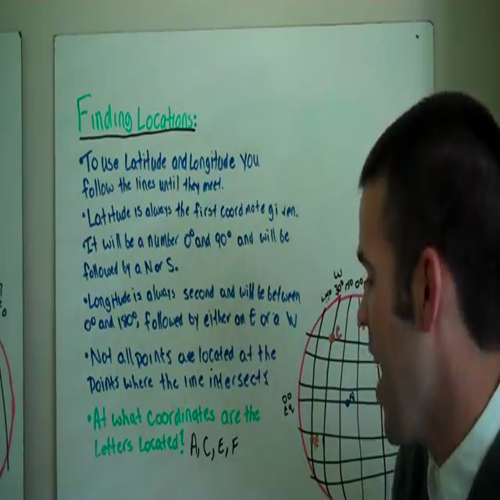 Finding Locations:
• To use Latitude and Longitude you
follow the lines until they meet.
• Latitude is always the first coordinate given.
It will be a number 0° and 90° and will be
followed by a N or S.
• Longitude is always second and will be between
0° and 180°, followed by either an E or a W
• Not all points are located at the
points where the line intersects
• At what coordinates are the
Letters Located? A, C, E, F
W
C
A
E